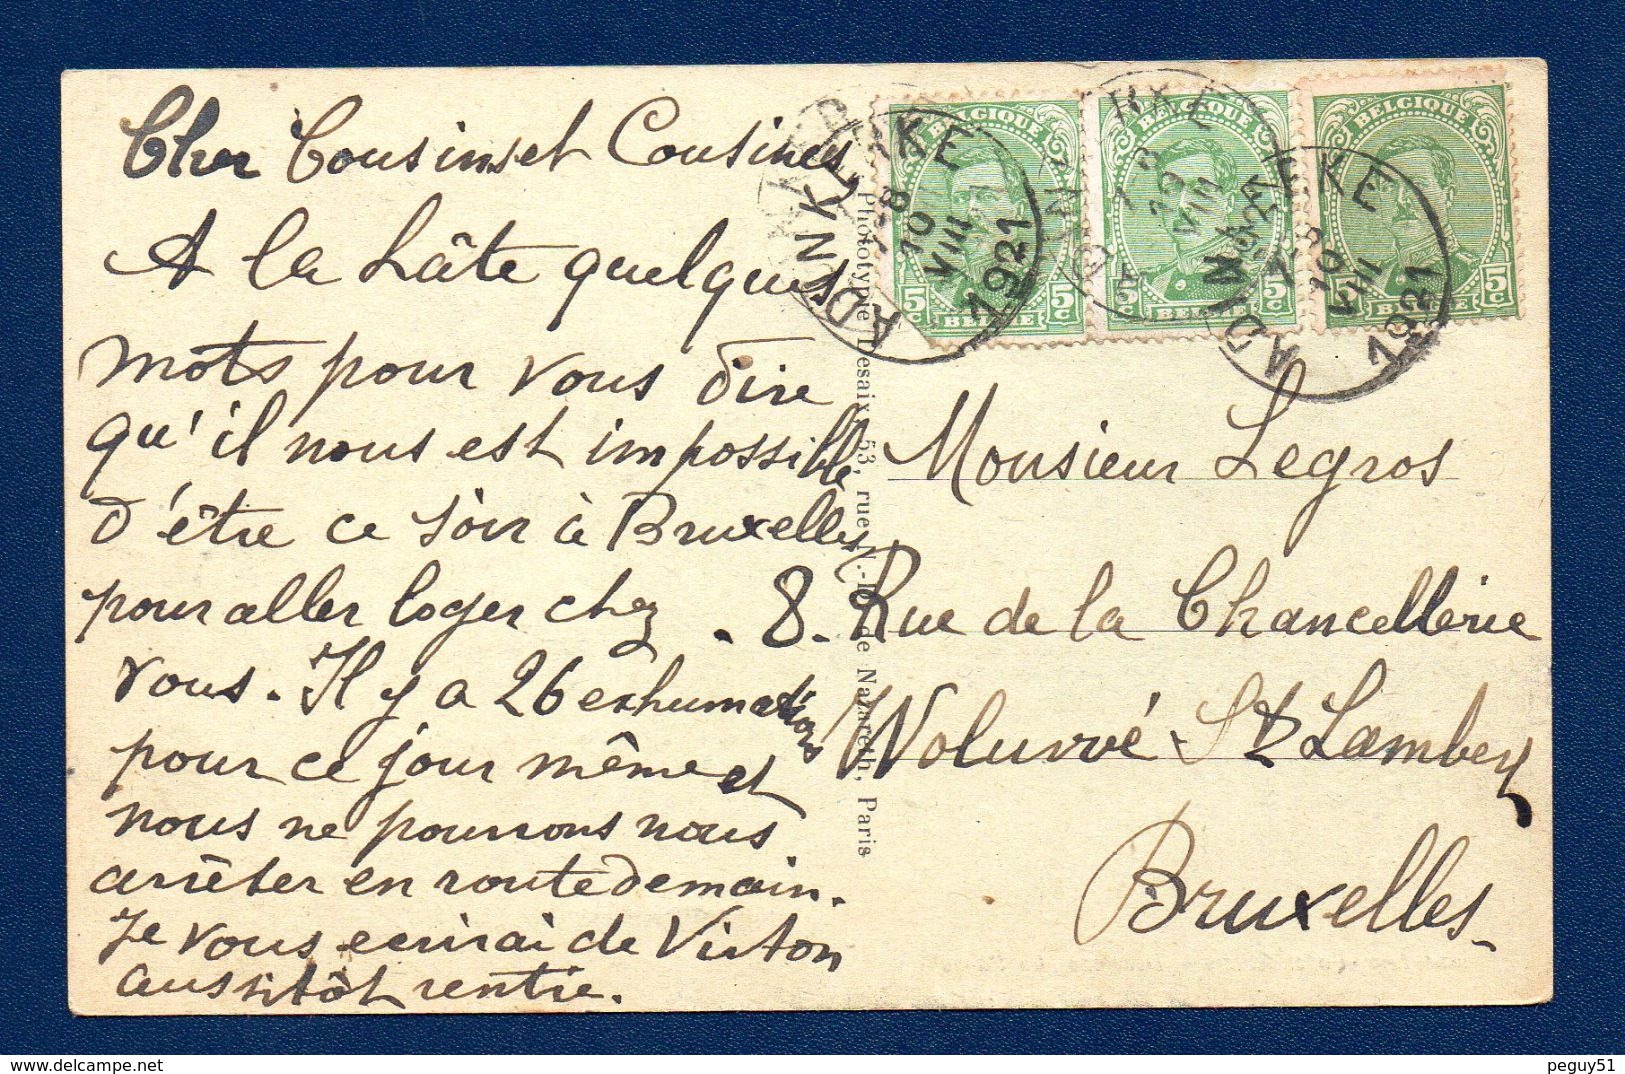 Cher Cousins et Cousines,
A la hâte quelques
mots pour vous dire
qu'il nous est impossible
d'être ce soir à Bruxelles
pour aller loger chez
vous. Il y a 26 exhumations
pour ce jour même et
nous ne pourrons nous
arrêter en route demain.
Je vous écrirai de Virton
aussitôt rentré.
Phototypie Desaix, 53, rue N.-D. de Nazareth, Paris
BELGIQUE
5c 5c
BELGIE
BELGIQUE
5c 5c
BELGIE
BELGIQUE
5c 5c
BELGIE
ADINKERKE
7-8
10
VIII
1921
ADINKERKE
7-8
10
VIII
1921
Monsieur Legros
8. Rue de la Chancellerie
Woluwé St Lambert
Bruxelles
peguy51
www.delcampe.net